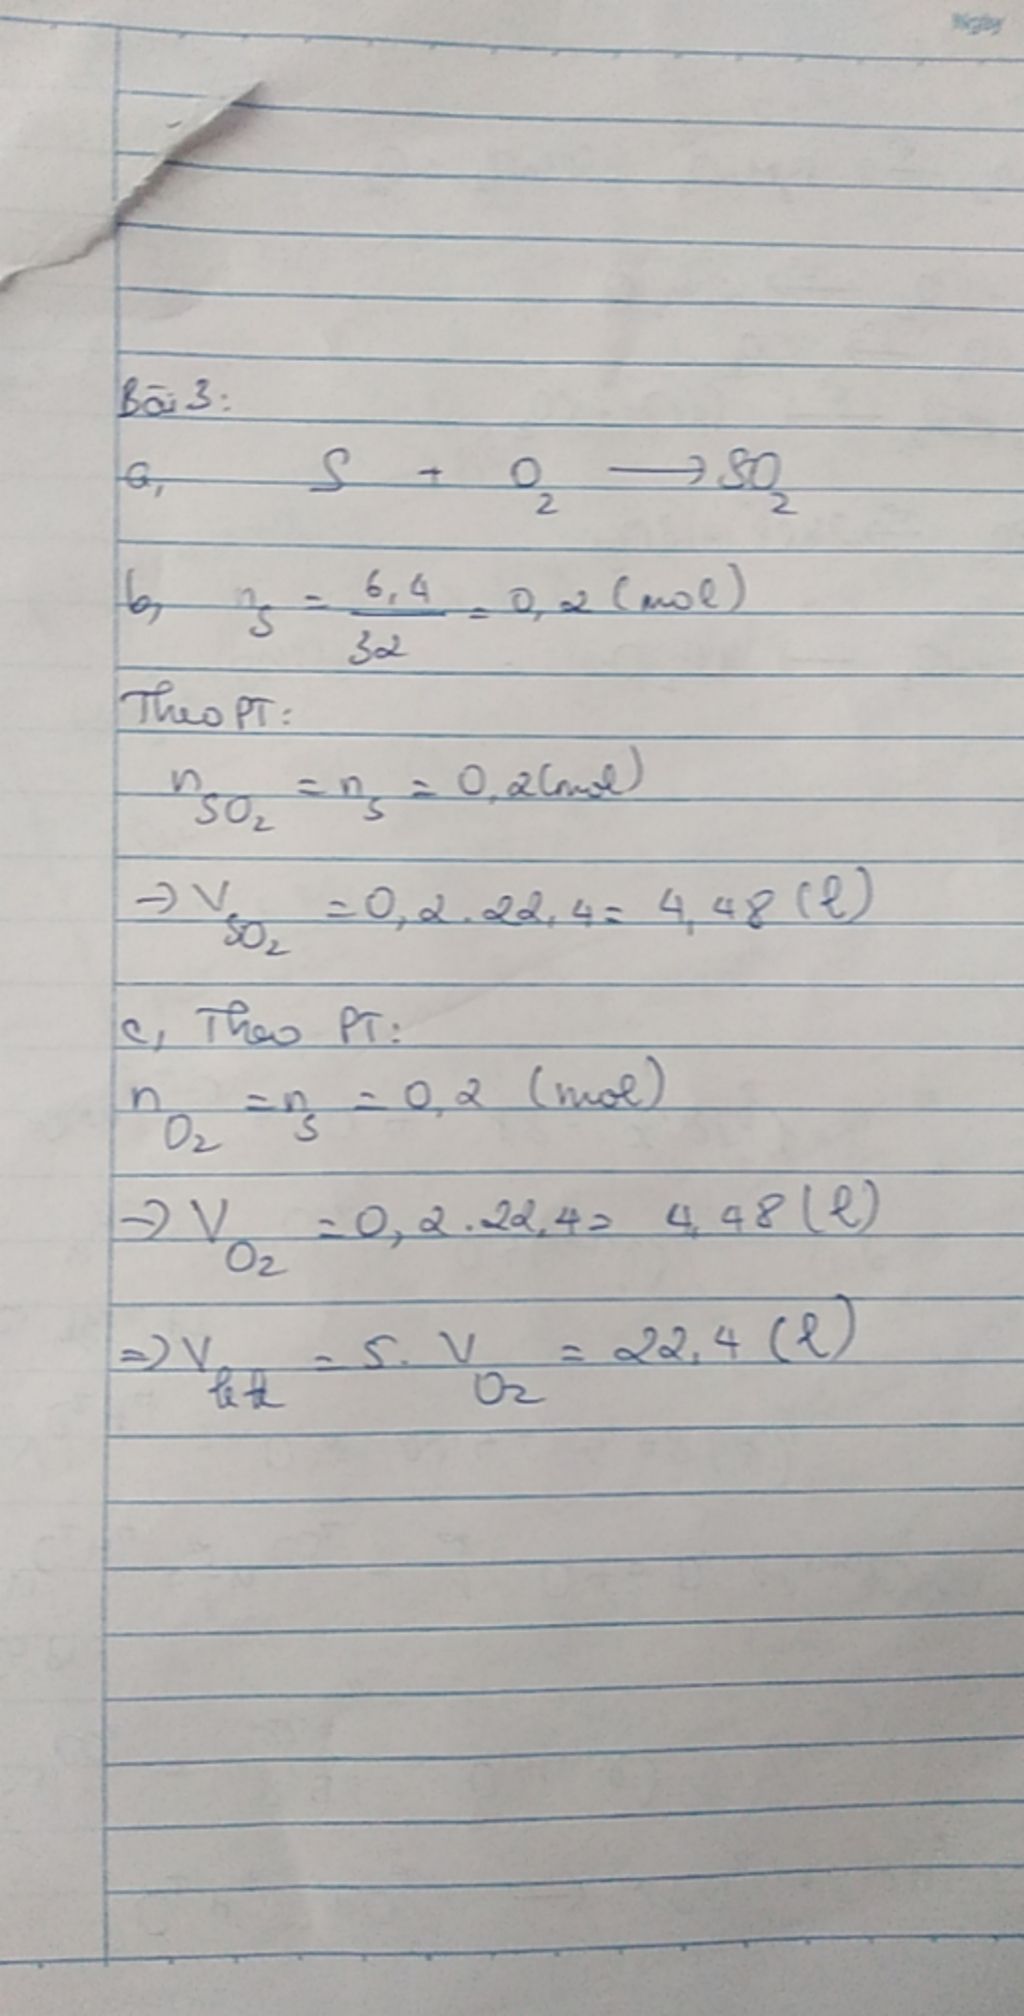 Bài 3:
a, S + O2 → SO2
b, nS = 6,4/32 = 0,2 (mol)
Theo PT:
nSO2 = nS = 0,2 (mol)
→ VSO2 = 0,2.22,4 = 4,48 (l)
c, Theo PT:
nO2 = nS = 0,2 (mol)
→ VO2 = 0,2.22,4 = 4,48 (l)
=> Vkk = 5.VO2 = 22,4 (l)